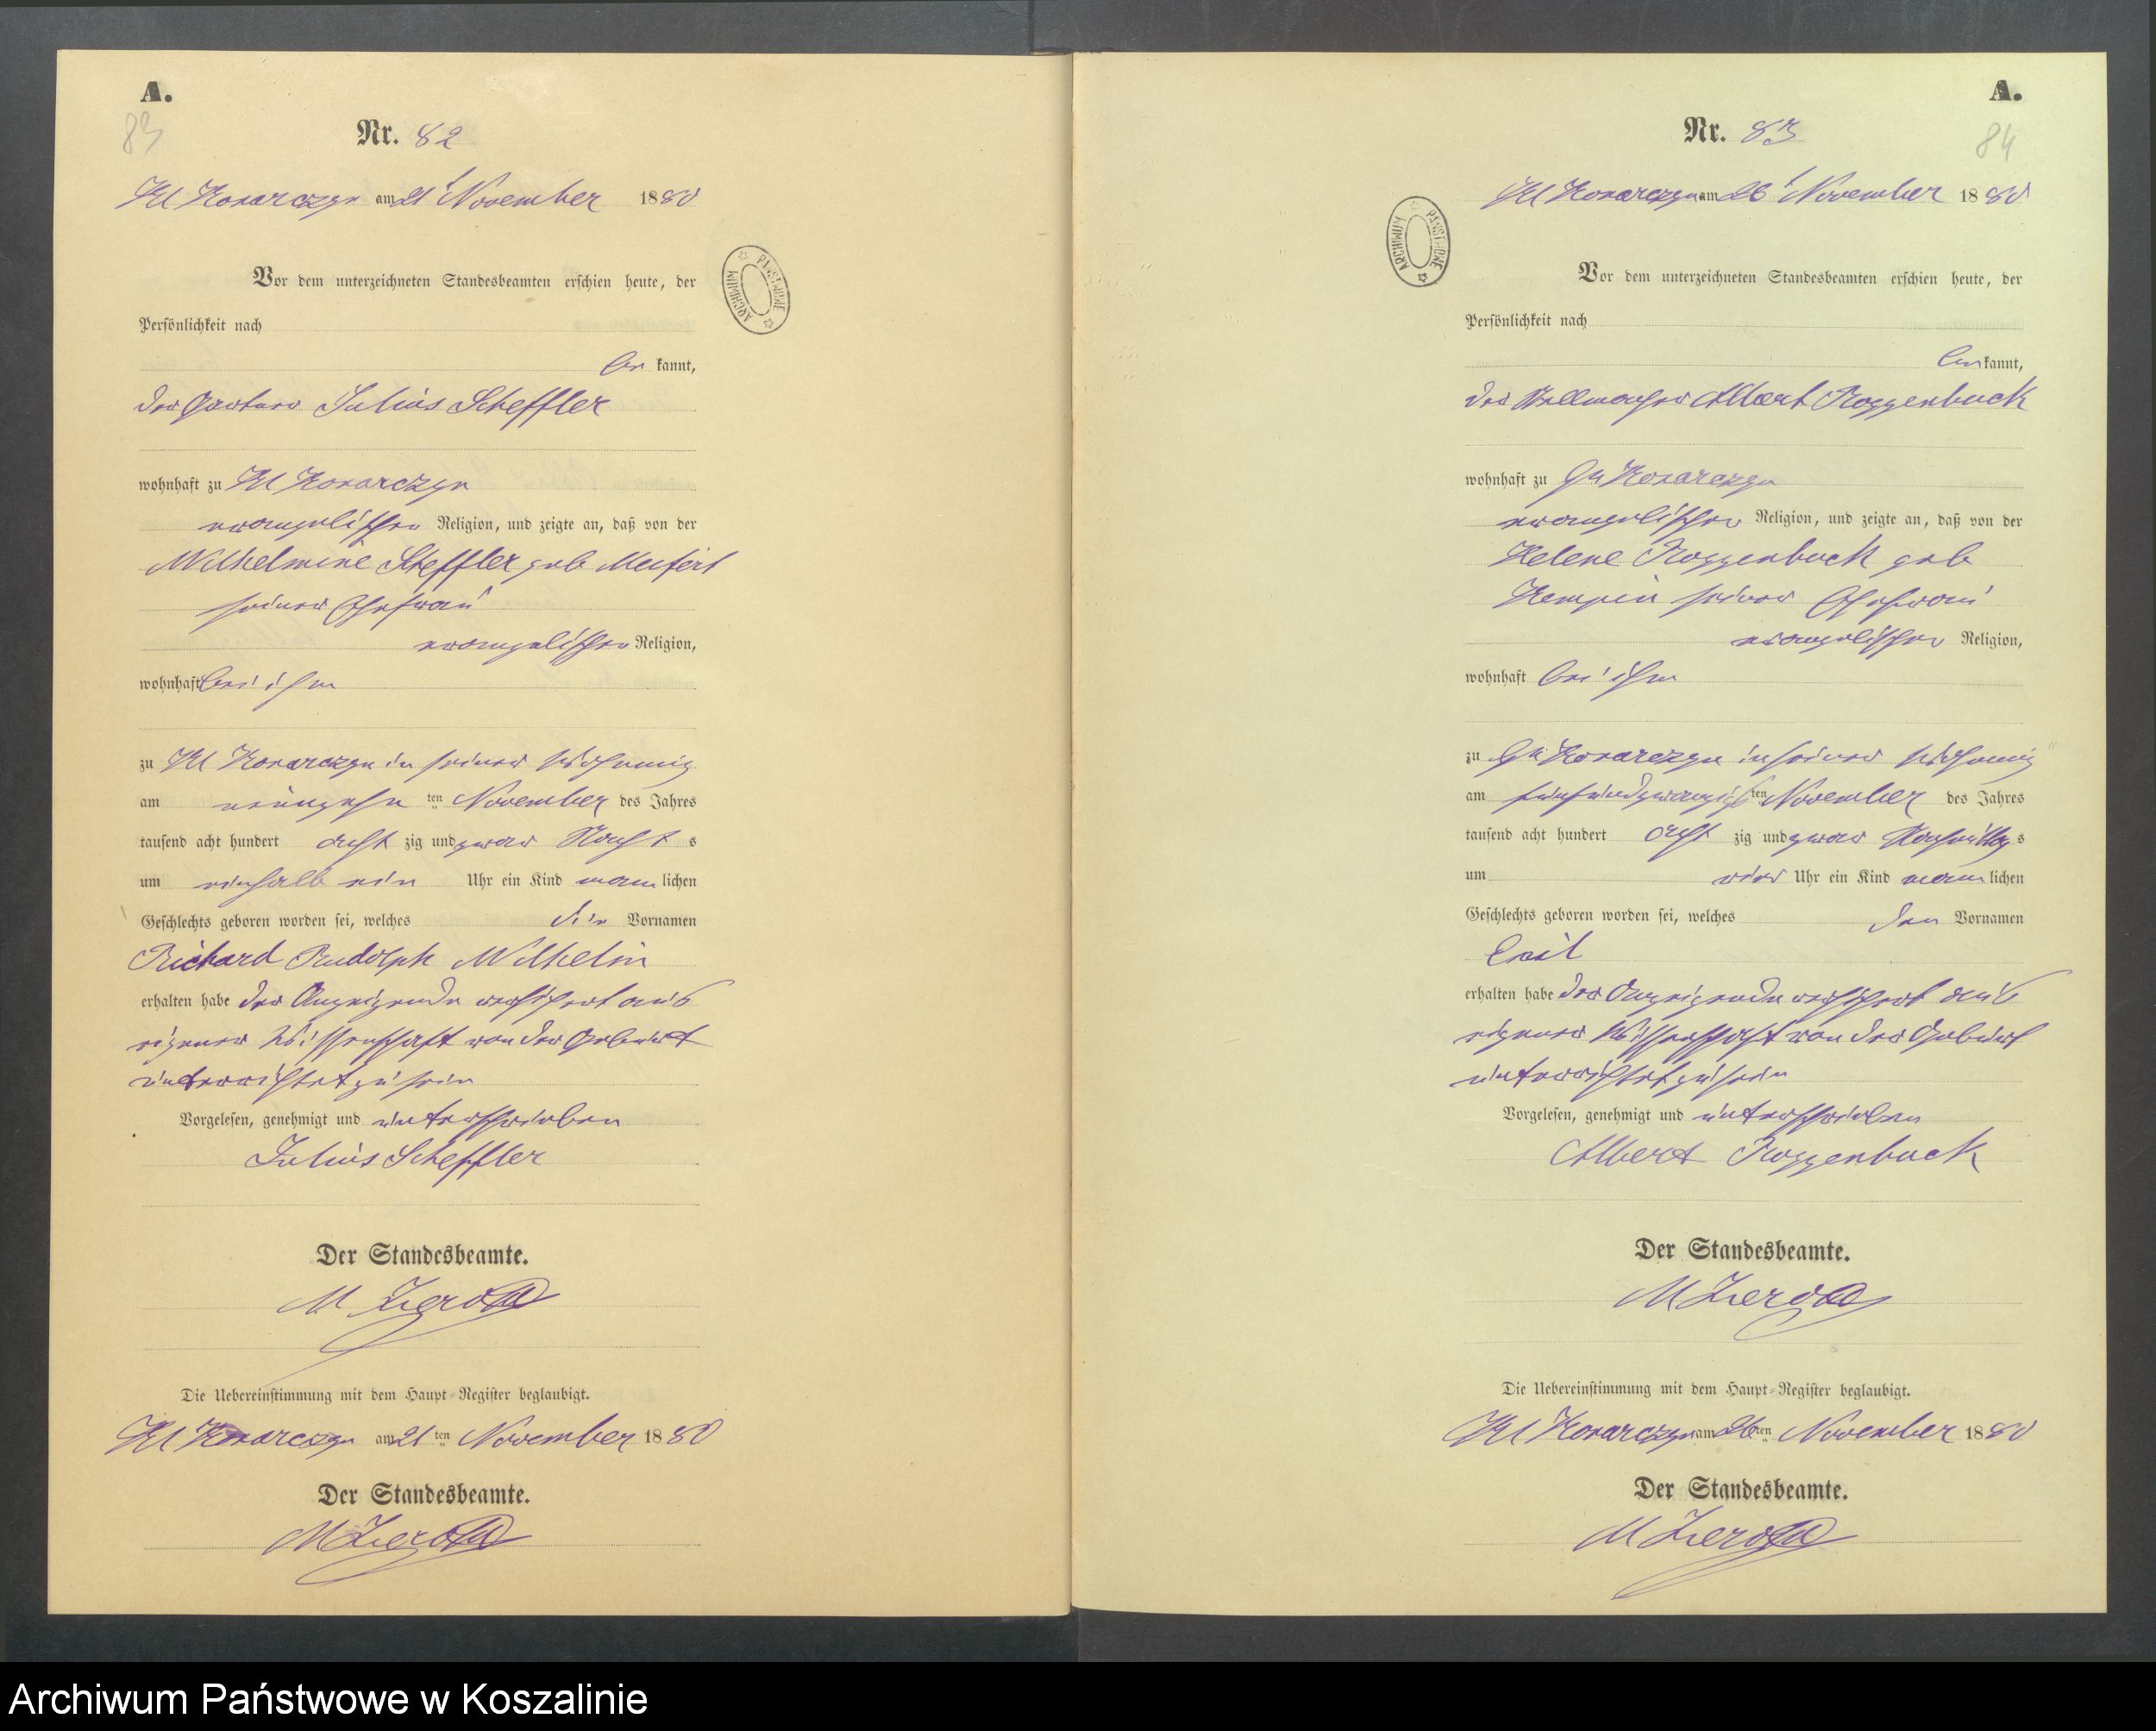 A.
83
Nr. 82
Kl Konarczyn am 21t November 1880
Vor dem unterzeichneten Standesbeamten erschien heute, der
Persönlichkeit nach
be kannt,
der Gärtner Julius Scheffler
wohnhaft zu Kl Konarczyn
evangelischer Religion, und zeigte an, daß von der
Wilhelmine Scheffler geb
seiner Ehefrau
evangelischer Religion,
wohnhaft bei ihm
zu Kl Konarczyn in seiner Wohnung
am neunzehn ten November des Jahres
tausend acht hundert acht zig und zwar Nacht s
um einhalb ein Uhr ein Kind männ lichen
Geschlechts geboren worden sei, welches die Vornamen
Richard Rudolph Wilhelm
erhalten habe der Anzeigende versichert aus
eigener Wissenschaft von der Geburt
unterrichtet zu sein
Vorgelesen, genehmigt und unterschrieben
Julius Scheffler
Der Standesbeamte.
M
Die Uebereinstimmung mit dem Haupt-Register beglaubigt.
Kl Konarczyn am 21 ten November 1880
Der Standesbeamte.
M
ARCHIWUM PAŃSTWOWE
A.
84
Nr. 83
Kl Konarczyn am 26t November 1880
Vor dem unterzeichneten Standesbeamten erschien heute, der
Persönlichkeit nach
be kannt,
der Stellmacher Albert Roggenbuck
wohnhaft zu Gr Konarczyn
evangelischer Religion, und zeigte an, daß von der
Helene Roggenbuck geb
Kempin seiner Ehefrau
evangelischer Religion,
wohnhaft bei ihm
zu Gr Konarczyn in seiner Wohnung
am fünfundzwanzigs ten November des Jahres
tausend acht hundert acht zig und zwar Nachmittag s
um vier Uhr ein Kind männ lichen
Geschlechts geboren worden sei, welches den Vornamen
Emil
erhalten habe der Anzeigende versichert aus
eigener Wissenschaft von der Geburt
unterrichtet zu sein
Vorgelesen, genehmigt und unterschrieben
Albert Roggenbuck
Der Standesbeamte.
M
Die Uebereinstimmung mit dem Haupt-Register beglaubigt.
Kl Konarczyn am 26 ten November 1880
Der Standesbeamte.
M
ARCHIWUM PAŃSTWOWE
Archiwum Państwowe w Koszalinie